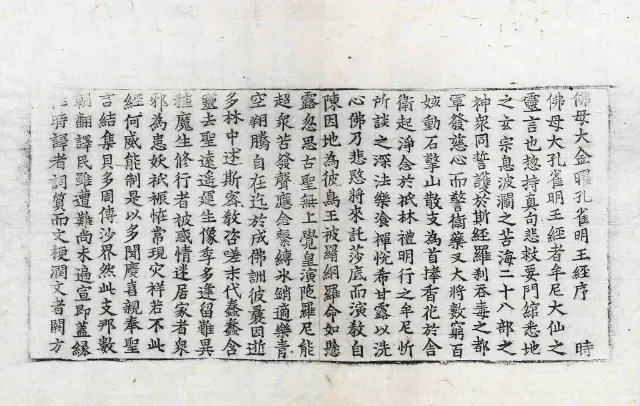 佛母大金曜孔雀明王經序　時
佛母大孔雀明王經者牟尼大仙之
靈言也惣持真句悲救要門綰悉地
之玄宗息波瀾之苦海二十八部之
神衆同誓護於斯經羅刹吞毒之都
軍發慈心而警衛藥叉大將數窮百
姟動石擎山散支為首捧香花於舍
衛起淨念於祇林禮明行之牟尼忻
所談之深法樂飡禪恱希甘露以洗
心佛乃悲愍將來託莎底而演教自
陳因地為彼鳥王被羂網羅命如懸
露忽思古聖無上覺皇演陁羅尼能
超衆苦發聲應念繫縛氷銷適樂青
空翔騰自在迄於成佛詶彼曩因逝
多林中述斯密教咨嗟末代蠢蠢含
靈去聖遠遥運生像季多逢留難異
種魔生修行者被惑情迷居家者衆
邪為患妖祇裖恠常現灾祥若不此
經何威能制是以多聞慶喜親奉聖
言結集貝多周傳沙界然此支那數
朝翻譯民雖遭難尚未遍宣即蓋緣
時譯者詞質而文梗潤文者闕方